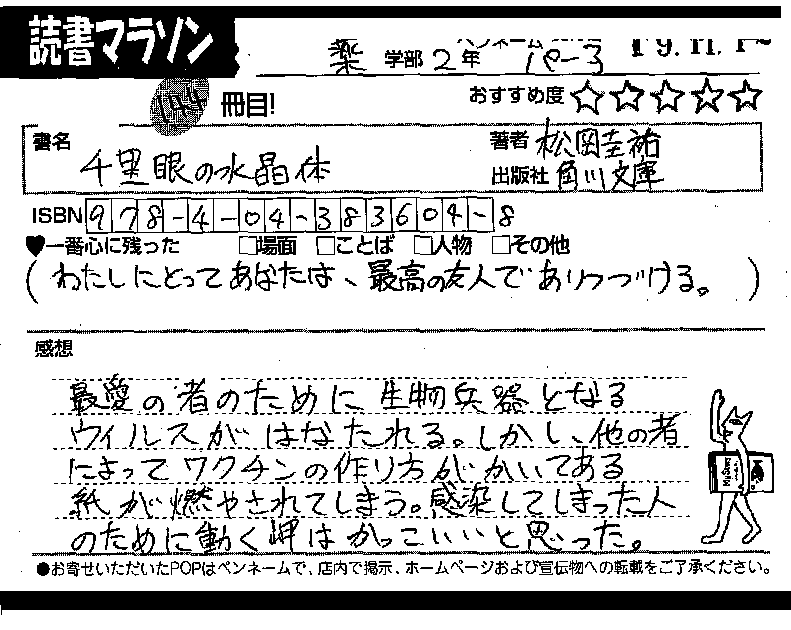 読書マラソン
薬 学部 2年 ペンネーム パーフ
144 冊目! おすすめ度 ☆☆☆☆☆
書名 千里眼の水晶体
著者 松岡圭祐
出版社 角川文庫
ISBN 978-4-04-383604-8
♥一番心に残った □場面 □ことば □人物 □その他
(わたしにとってあなたは、最高の友人でありつづける。)
感想
最愛の者のために生物兵器となる
ウィルスがはなたれる。しかし、他の者
によってワクチンの作り方がかいてある
紙が燃やされてしまう。感染してしまった人
のために動く岬はかっこいいと思った。
●お寄せいただいたPOPはペンネームで、店内で掲示、ホームページおよび宣伝物への転載をご了承ください。